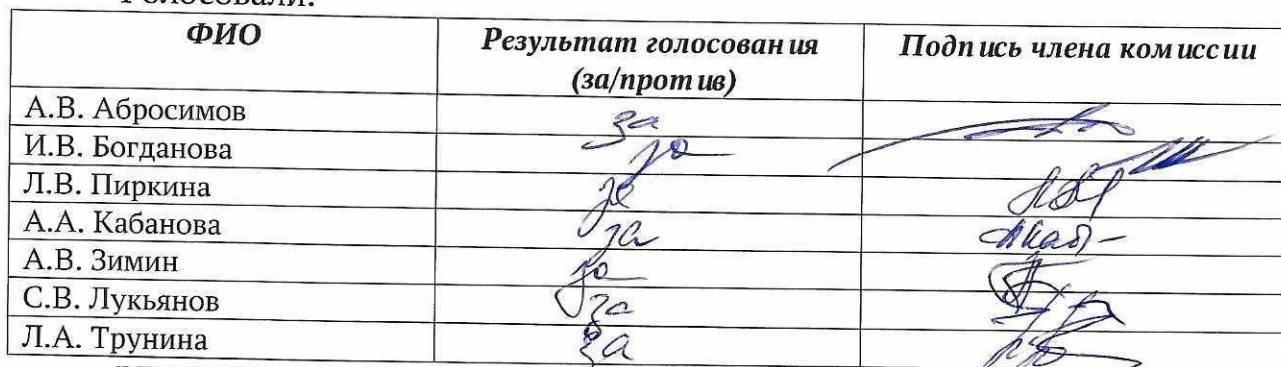 Голосовали:
ФИО Результат голосования (за/против) Подпись члена комиссии
А.В. Абросимов за
И.В. Богданова за
Л.В. Пиркина за
А.А. Кабанова за
А.В. Зимин за
С.В. Лукьянов за
Л.А. Трунина за